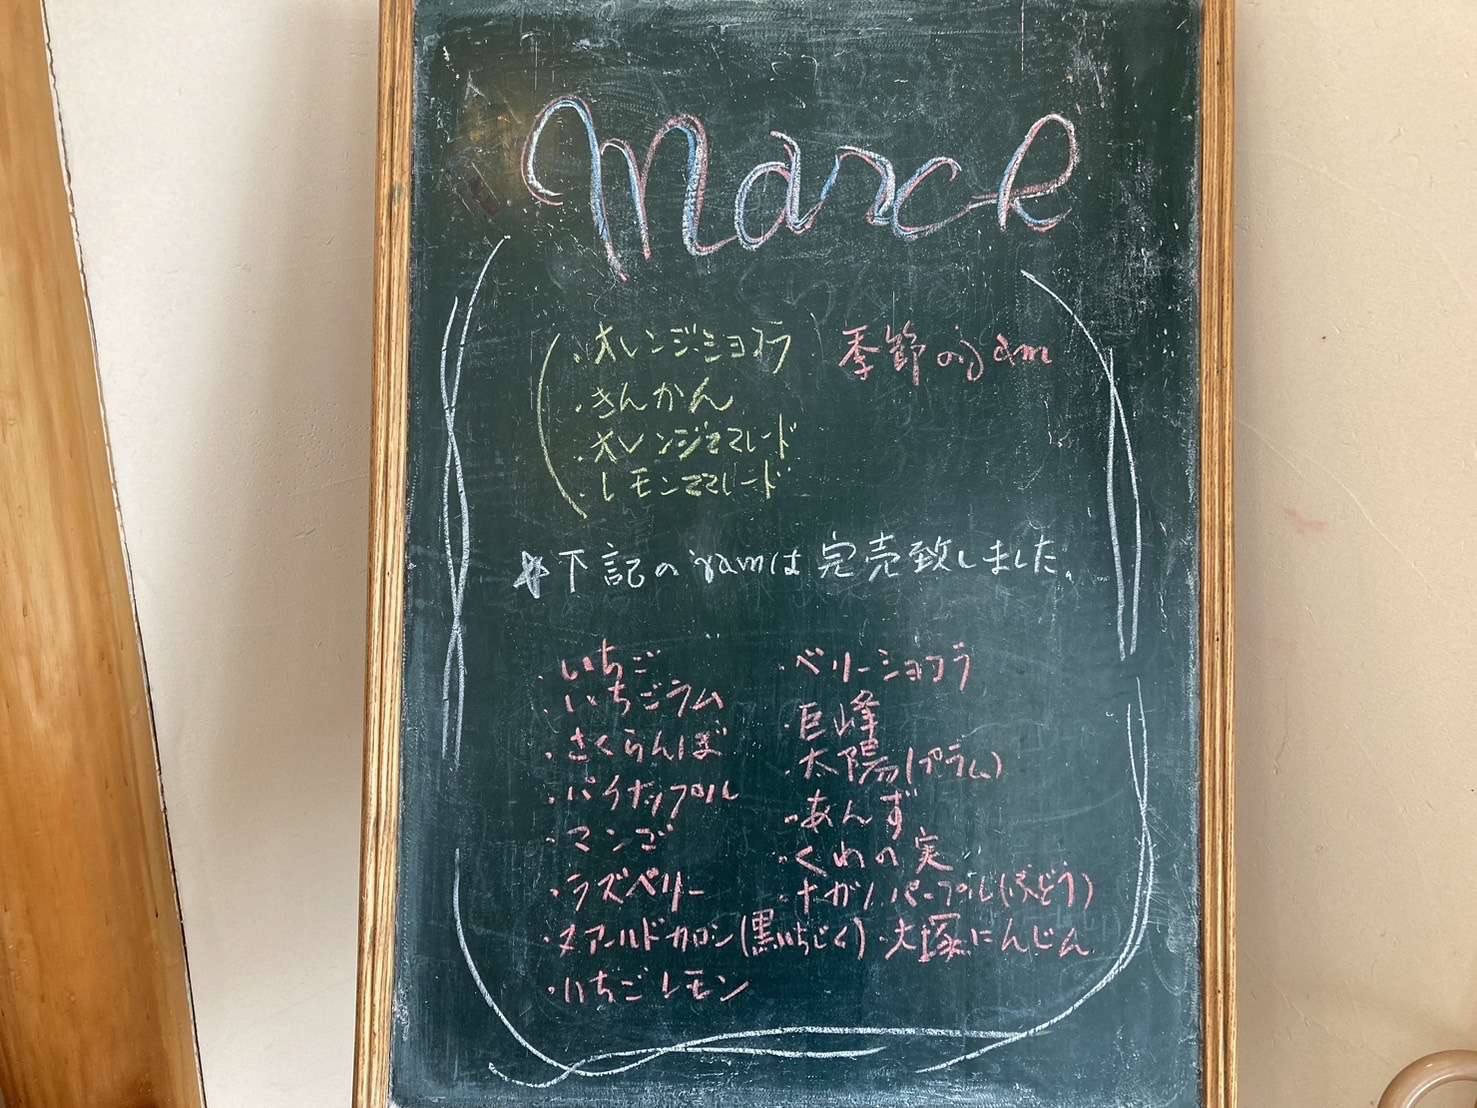 March
季節のjam
・オレンジショコラ
・きんかん
・オレンジママレード
・レモンママレード
☆下記のjamは完売致しました。
・いちご
・いちごラム
・さくらんぼ
・パイナップル
・マンゴ
・ラズベリー
・ヌアールドカロン(黒いちじく)
・いちごレモン
・ベリーショコラ
・巨峰
・太陽(プラム)
・あんず
・くわの実
・ナガノパープル(ぶどう)
・大塚にんじん